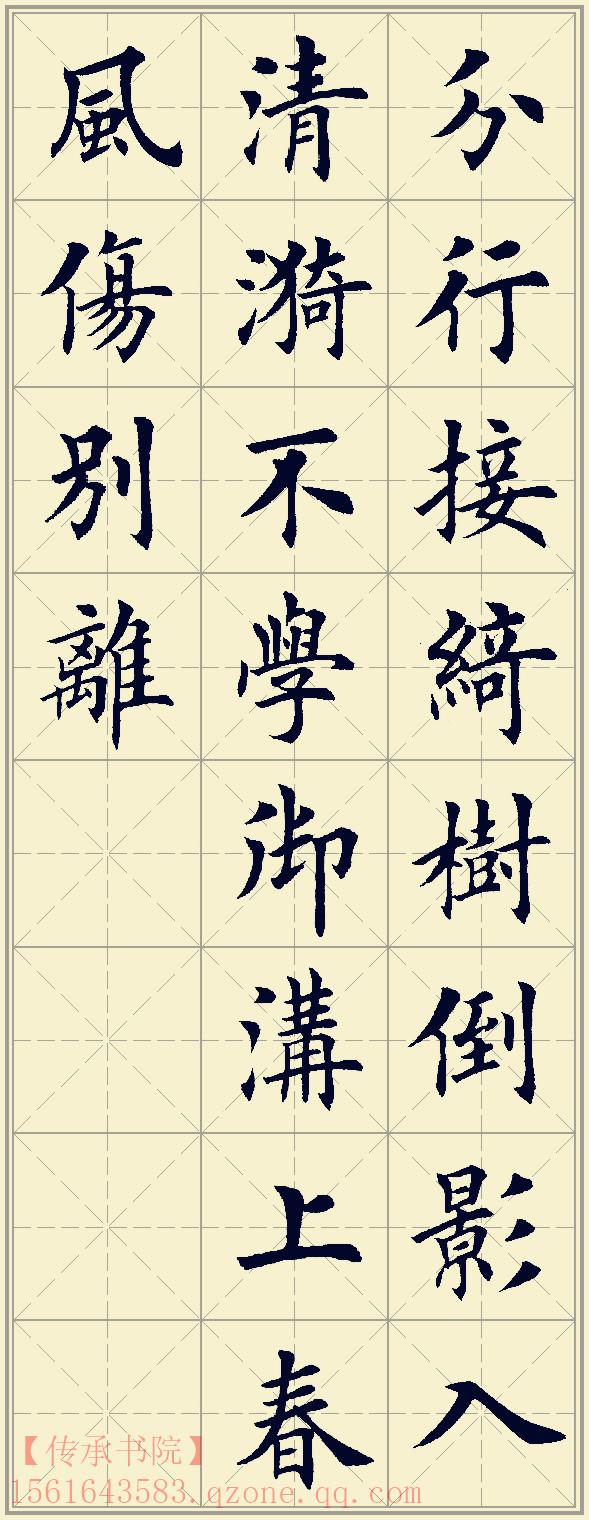 分行接綺樹倒影入
清漪不學御溝上春
風傷別離
【传承书院】
1561643583.qzone.qq.com